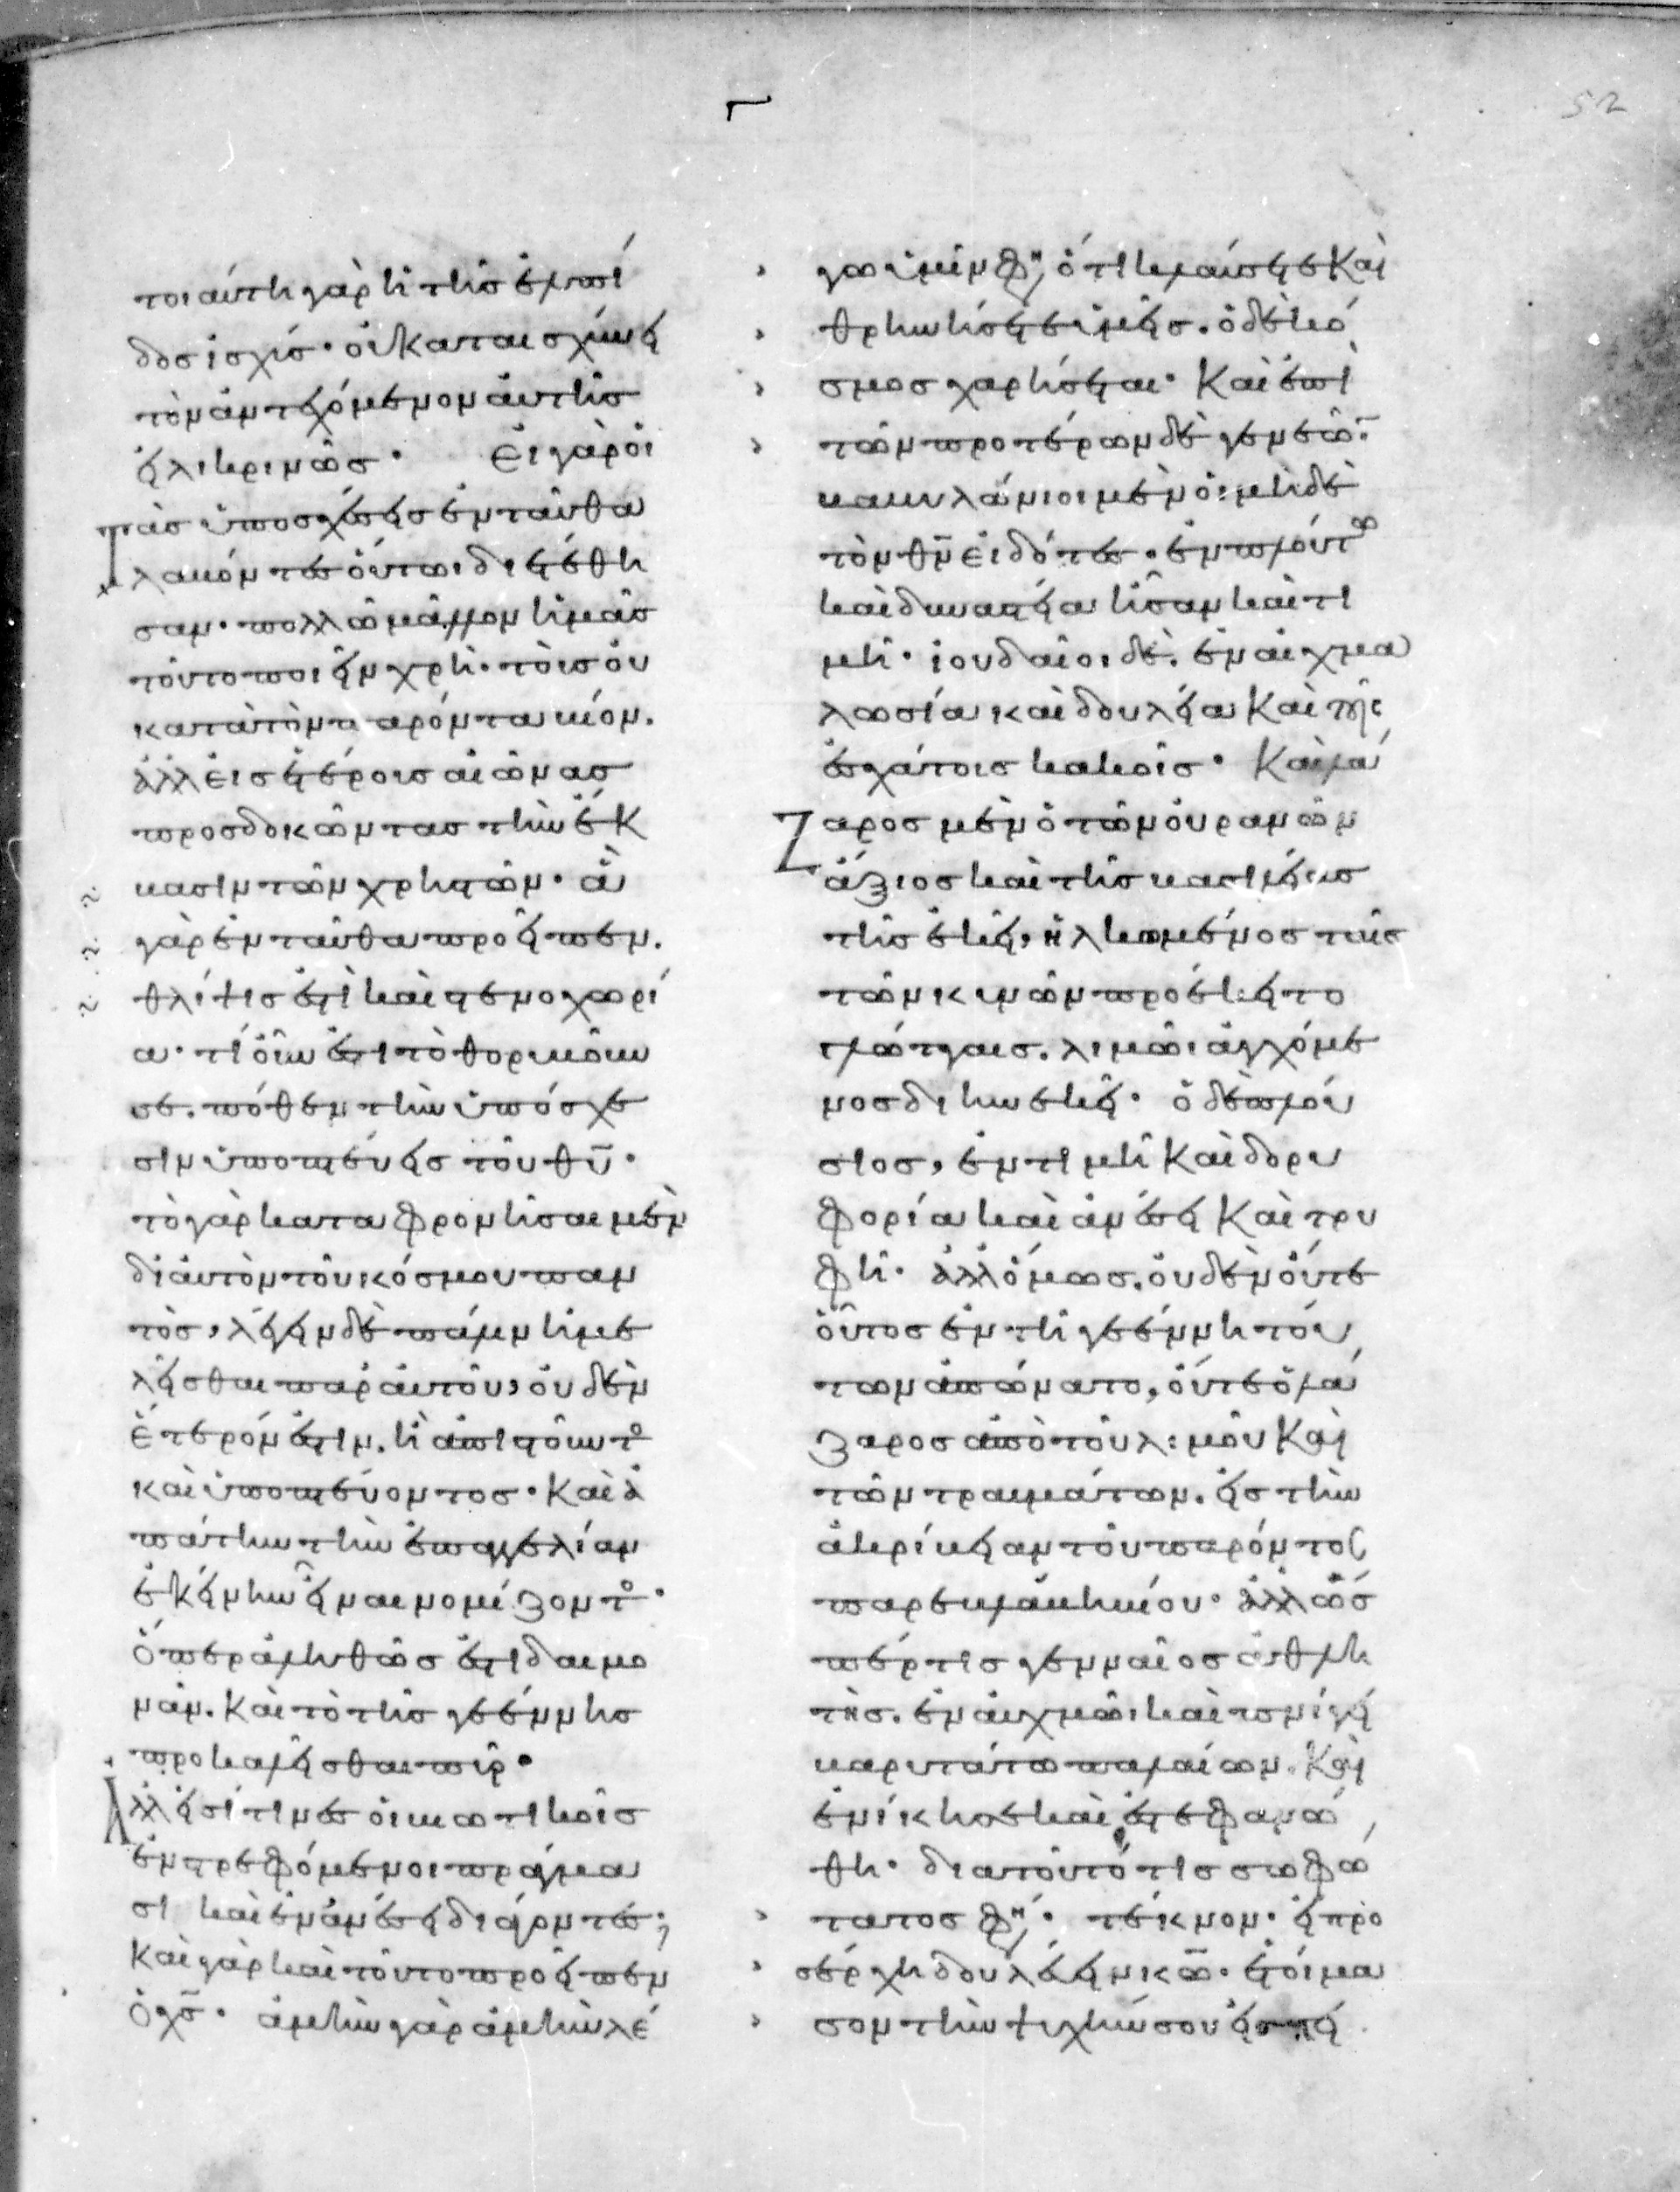 Γ
52
τοιαύτη γὰρ ἡ τῆς ἐλπί
δος ἰσχύς· οὐ καταισχύνει
τὸν ἀντεχόμενον αὐτῆς
εἰλικρινῶς· Εἰ γὰρ οἱ
τὰς ὑποσχέσεις ἐνταῦθα
λαβόντες οὕτω διετέθη
σαν· πολλῶ μᾶλλον ἡμᾶς
τοῦτο ποιεῖν χρὴ· τοὺς οὐ
κατὰ τὸν παρόντα βίον.
ἀλλ εἰς ἑτέρους αἰῶνας
προσδοκῶντας τὴν ἔκ
βασιν τῶν χρηστῶν· ἃ
γὰρ ἐνταῦθα προεῖπεν.
θλίψις ἐστὶ καὶ στενοχωρί
α· τί οὖν ἐστι τὸ θορυβοῦν
σε. πόθεν τὴν ὑπόσχε
σιν ὑποπτεύεις τοῦ θῡ·
τὸ γὰρ καταφρονῆσαι μὲν
δι αὐτὸν τοῦ κόσμου παν
τὸς, λέγειν δὲ πάλιν ἠμε
λεῖσθαι παρ αὐτοῦ, οὐδὲν
ἕτερόν ἐστιν. ἢ ἀπιστοῦντο
καὶ ὑποπτεύοντος· καὶ ἀ
πάτην τὴν ἐπαγγελίαν
ἐκείνην εἶναι νομίζοντο·
ὅπερ ἀληθῶς ἐστι δαιμο
νᾶν. καὶ τὸ τῆς γεέννης
προκαλεῖσθαι πῦρ·
Ἀλλ εἰσί τινες οἳ βιωτικοῖς
ἐντρεφόμενοι πράγμα
σι καὶ ἐν ἀνέσει διάγοντες;
καὶ γὰρ καὶ τοῦτο προεῖπεν
ὁ χς̄· ἀμὴν γὰρ ἀμὴν λέ
γω ὑμῖν φη, ὅτι κλαύσετε καὶ
θρηνήσετε ὑμεῖς. ὁ δὲ κό
σμος χαρήσεται· καὶ ἐπὶ
τῶν προτέρων δὲ γενεῶν·
βαβυλώνιοι μὲν οἱ μηδὲ
τὸν θν̄ εἰδότες. ἐν πλούτω
καὶ δυναστεία ἦσαν καὶ τι
μῆ· ἰουδαῖοι δὲ. ἐν αἰχμα
λωσία καὶ δουλεία καὶ τοῖς
ἐσχάτοις κακοῖς· καὶ λά
ζαρος μὲν ὁ τῶν οὐρανῶν
ἄξιος καὶ τῆς βασιλείας
τῆς ἐκεῖ, ἡλκωμένος ταῖς
τῶν κυνῶν προέκειτο
γλώτταις. λιμῶι ἀγχόμε
νος διηνεκεῖ· ὁ δὲ πλού
σιος, ἐν τιμῆ καὶ δορυ
φορία καὶ ἀνέσει καὶ τρυ
φῆ· ἀλλ ὅμως. οὐδὲν οὔτε
οὗτος ἐν τῆ γεέννη τού
των ἀπώνατο, οὔτε ὁ λά
ζαρος ἀπὸ τοῦ λιμοῦ καὶ
τῶν τραυμάτων. εἰς τὴν
ἀπὸ τοῦ παρόντος
παρεβλάβη βίου· ἀλλ ὥσ
πέρ τις γενναῖος ἀθλη
τὴς. ἐν αὐχμῶι καὶ πνίγει
βαρυτάτω παλαίων. καὶ
ἐνίκησε καὶ ἐστεφανώ
θη· διατοῦτό τις σοφώ
τατος φη· τέκνον· εἰ προ
σέρχη δουλεύειν κω̄· ἑτοίμα
σον τὴν ψυχήν σου εἰς πει